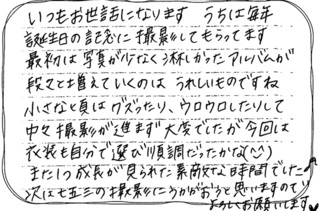 いつもお世話になります うちは毎年
誕生日の記念に撮影してもらってます
最初は写真が少なく淋しかったアルバムが
段々と増えていくのは うれしいものですね
小さな頃はグズったり、ウロウロしたりして
中々撮影が進まず大変でしたが今回は
衣装も自分で選び順調だったかな(^^)
また1つ成長が見られた素敵な時間でした
次は七五三の撮影にうかがおうと思いますので
よろしくお願いします♥